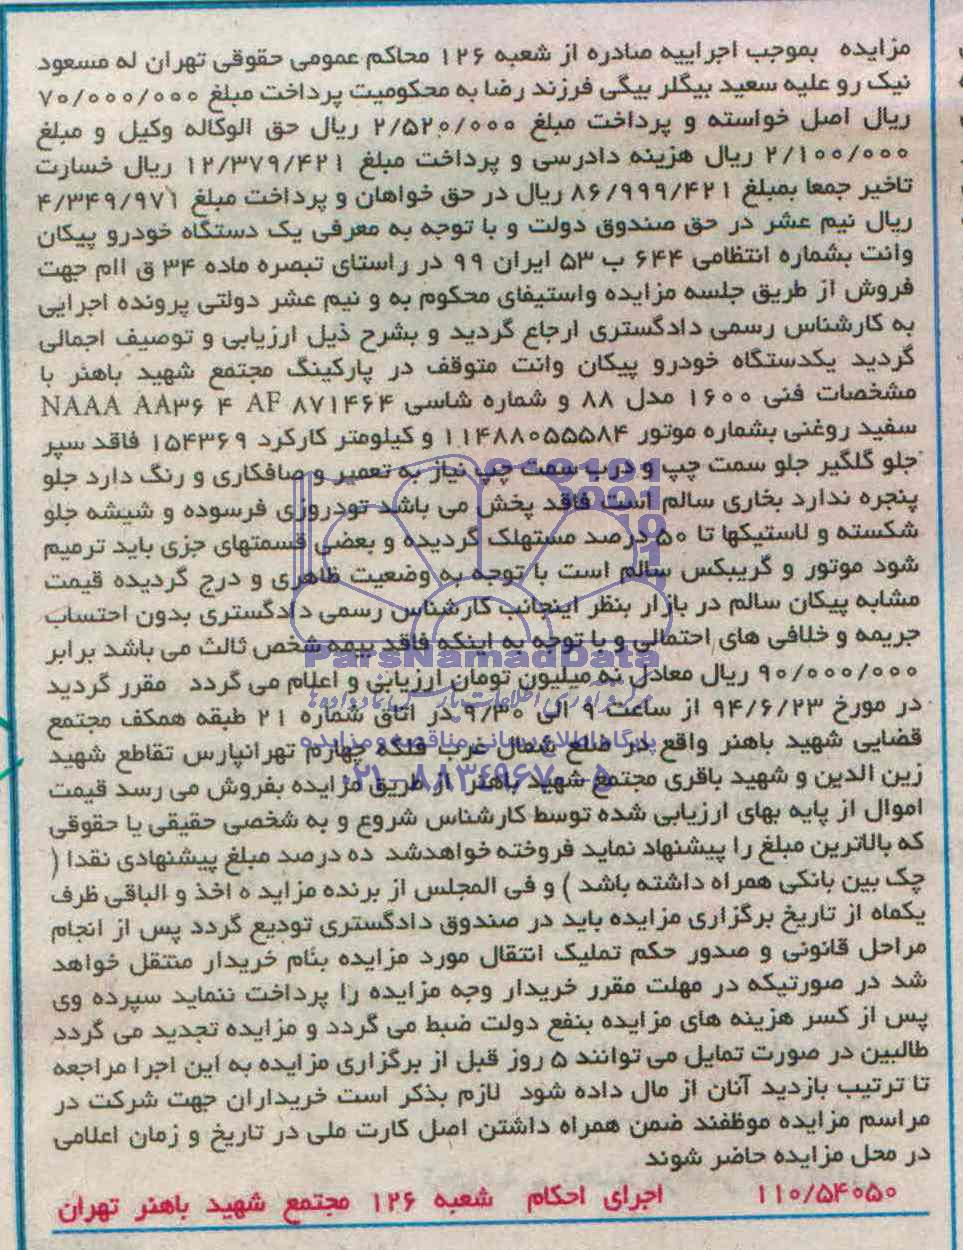 مزایده بموجب اجراییه صادره از شعبه ۱۲۶ محاکم عمومی حقوقی تهران له مسعود
نیک رو علیه سعید بیگلر بیگی فرزند رضا به محکومیت پرداخت مبلغ ۷۰/۰۰۰/۰۰۰
ریال اصل خواسته و پرداخت مبلغ ۲/۵۲۰/۰۰۰ ریال حق الوکاله وکیل و مبلغ
۲/۱۰۰/۰۰۰ ریال هزینه دادرسی و پرداخت مبلغ ۱۲/۳۷۹/۴۲۱ ریال خسارت
تاخیر جمعا بمبلغ ۸۶/۹۹۹/۴۲۱ ریال در حق خواهان و پرداخت مبلغ ۴/۳۴۹/۹۷۱
ریال نیم عشر در حق صندوق دولت و با توجه به معرفی یک دستگاه خودرو پیکان
وانت بشماره انتظامی ۶۴۴ ب ۵۳ ایران ۹۹ در راستای تبصره ماده ۳۴ ق اام جهت
فروش از طریق جلسه مزایده واستیفای محکوم به و نیم عشر دولتی پرونده اجرایی
به کارشناس رسمی دادگستری ارجاع گردید و بشرح ذیل ارزیابی و توصیف اجمالی
گردید یکدستگاه خودرو پیکان وانت متوقف در پارکینگ مجتمع شهید باهنر با
مشخصات فنی ۱۶۰۰ مدل ۸۸ و شماره شاسی NAAA AA۳۶ ۴ AF ۸۷۱۴۶۴
سفید روغنی بشماره موتور ۱۱۴۸۸۰۵۵۵۸۴ و کیلومتر کارکرد ۱۵۴۳۶۹ فاقد سپر
جلو گلگیر جلو سمت چپ و درب سمت چپ نیاز به تعمیر و صافکاری و رنگ دارد جلو
پنجره ندارد بخاری سالم است فاقد پخش می باشد تودروزی فرسوده و شیشه جلو
شکسته و لاستیکها تا ۵۰ درصد مستهلک گردیده و بعضی قسمتهای جزی باید ترمیم
شود موتور و گریبکس سالم است با توجه به وضعیت ظاهری و درج گردیده قیمت
مشابه پیکان سالم در بازار بنظر اینجانب کارشناس رسمی دادگستری بدون احتساب
جریمه و خلافی های احتمالی و با توجه به اینکه فاقد بیمه شخص ثالث می باشد برابر
ParsNamadData
۹۰/۰۰۰/۰۰۰ ریال معادل نه میلیون تومان ارزیابی و اعلام می گردد مقرر گردید
در مورخ ۹۴/۶/۲۳ از ساعت ۹ الی ۹/۳۰ در اتاق شماره ۲۱ طبقه همکف مجتمع
قضایی شهید باهنر واقع در ضلع شمال غرب فلکه چهارم تهرانپارس تقاطع شهید
پایگاه اطلاع رسانی مناقصه و مزایده
زین الدین و شهید باقری مجتمع شهید باهنر از طریق مزایده بفروش می رسد قیمت
۰۲۱-۸۸۳۴۹۶۷۰-۵
اموال از پایه بهای ارزیابی شده توسط کارشناس شروع و به شخصی حقیقی یا حقوقی
که بالاترین مبلغ را پیشنهاد نماید فروخته خواهدشد ده درصد مبلغ پیشنهادی نقدا (
چک بین بانکی همراه داشته باشد ) و فی المجلس از برنده مزاید ه اخذ و الباقی ظرف
یکماه از تاریخ برگزاری مزایده باید در صندوق دادگستری تودیع گردد پس از انجام
مراحل قانونی و صدور حکم تملیک انتقال مورد مزایده بنام خریدار منتقل خواهد
شد در صورتیکه در مهلت مقرر خریدار وجه مزایده را پرداخت ننماید سپرده وی
پس از کسر هزینه های مزایده بنفع دولت ضبط می گردد و مزایده تجدید می گردد
طالبین در صورت تمایل می توانند ۵ روز قبل از برگزاری مزایده به این اجرا مراجعه
تا ترتیب بازدید آنان از مال داده شود لازم بذکر است خریداران جهت شرکت در
مراسم مزایده موظفند ضمن همراه داشتن اصل کارت ملی در تاریخ و زمان اعلامی
در محل مزایده حاضر شوند
۱۱۰/۵۴۰۵۰ اجرای احکام شعبه ۱۲۶ مجتمع شهید باهنر تهران